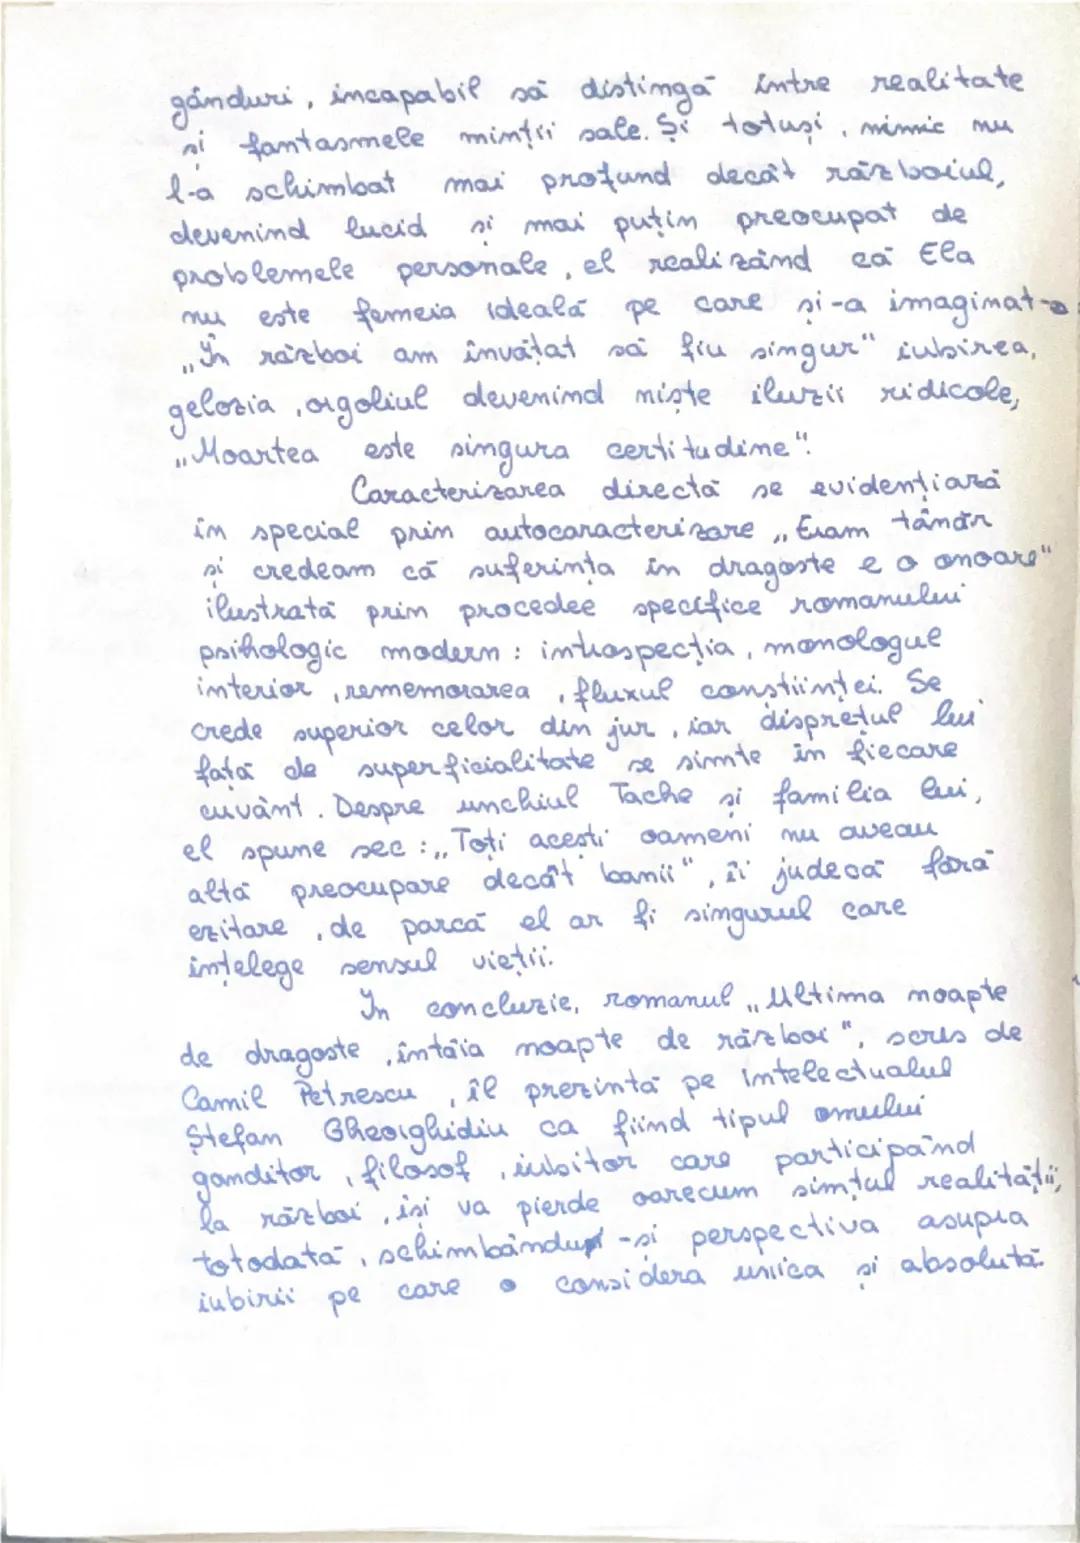 gânduri, incapabil să distingă între realitate
și fantasmele minții sale. Și totuși, nimic nu
l-a schimbat mai profund decât războiul,
devenind lucid și mai puțin preocupat de
problemele personale, el realizând că Ela
nu este femeia ideală pe care și-a imaginat-o
„În război am învățat să fiu singur" iubirea,
gelozia, orgoliul devenind niște iluzii ridicole,
„Moartea este singura certitudine".
Caracterizarea directă se evidențiază
în special prin autocaracterizare „Eram tânăr
și credeam că suferința în dragoste e o onoare"
ilustrată prin procedee specifice romanului
psihologic modern: introspecția, monologul
interior, rememorarea, fluxul conștiinței. Se
crede superior celor din jur, iar disprețul lui
față de superficialitate se simte în fiecare
cuvânt. Despre unchiul Tache și familia lui,
el spune sec: „Toți acești oameni nu aveau
altă preocupare decât banii", îi judecă fără
ezitare, de parcă el ar fi singurul care
înțelege sensul vieții.
În concluzie, romanul „Ultima noapte
de dragoste, întâia noapte de război", scris de
Camil Petrescu, îl prezintă pe intelectualul
Ștefan Gheorghidiu ca fiind tipul omului
ganditor, filosof, iubitor care participând
la război, își va pierde oarecum simțul realității,
totodată, schimbându-și perspectiva asupra
iubirii pe care o considera unica și absolută.